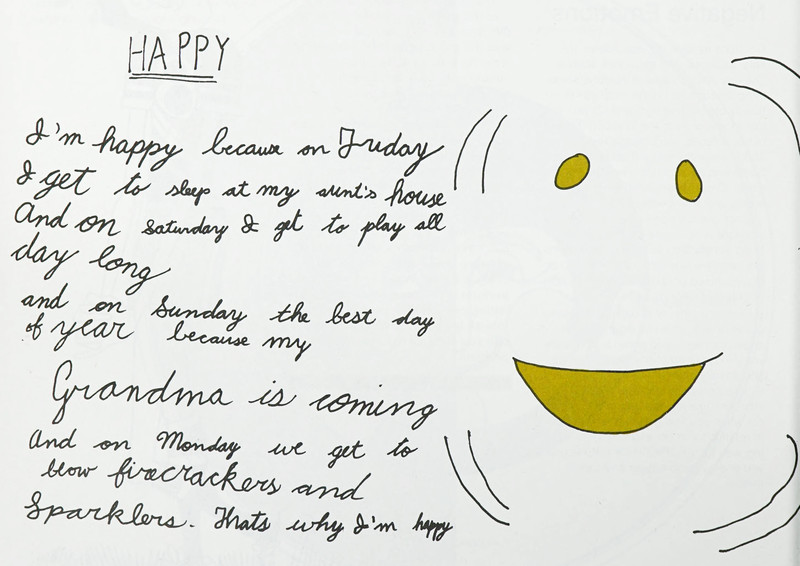 HAPPY
I'm happy because on Friday
I get to sleep at my aunt's house
And on saturday I get to play all
day long
and on Sunday the best day
of year because my
Grandma is coming
And on Monday we get to
blow firecrackers and
Sparklers. Thats why I'm happy